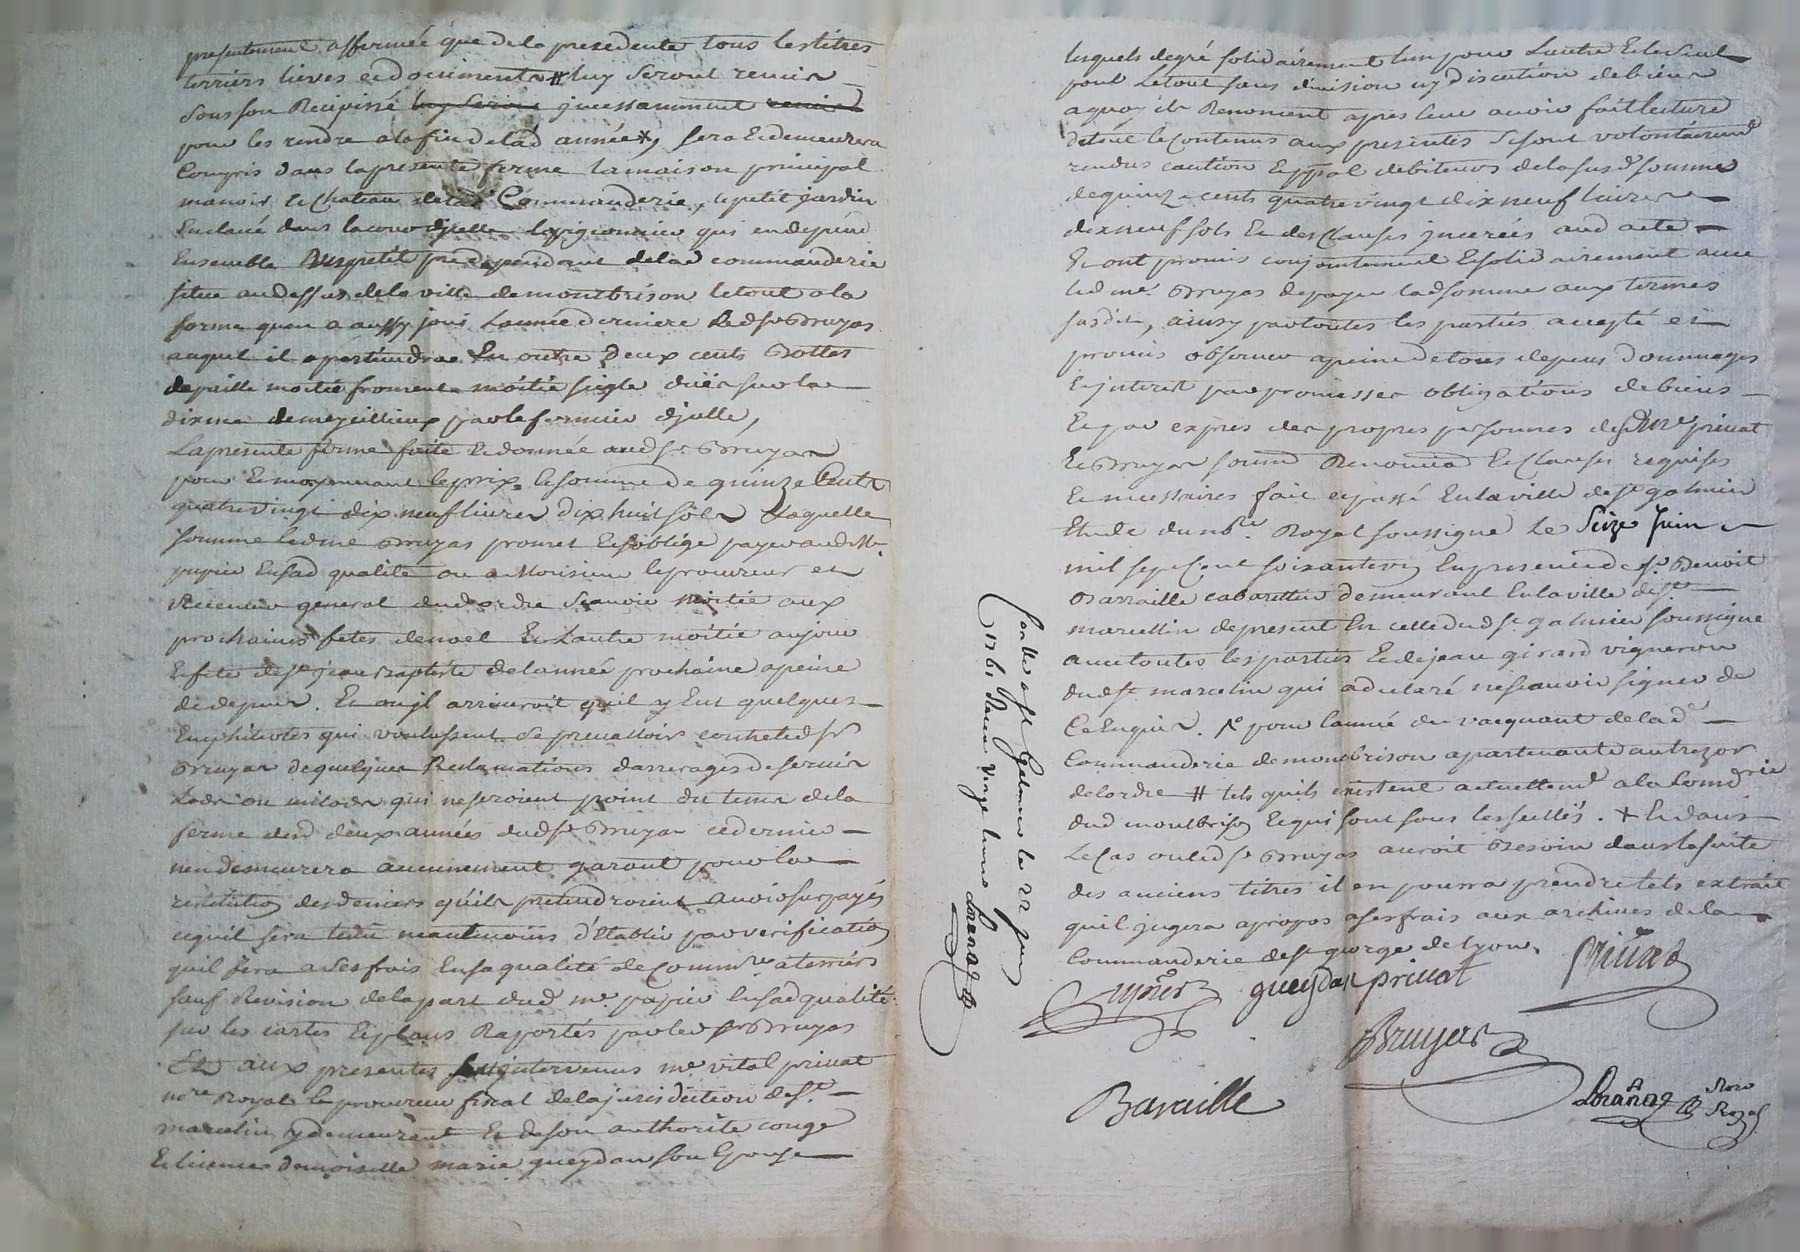 presentement affermée que de la precedente tous les titres
terriers lieves et documents # luy seront remis
sous son Recipissé luy seront jncessamment remis
pour les rendre a la fin de lad année * sera et demeurera
Compris dans la presente ferme la maison principal
manoir et Chateau de lad Commanderie, le petit jardin
Enclavé dans la cour djcelle le pigeonnier qui en depend
Ensemble le petit pré dependant de lad commanderie
situé au dessus de la ville de montbrison le tout a la
forme quen a aussy joui L'année derniere led sr Bruyas
auquel il apartiendra En outre deux cents Bottes
de paille moitié froment moitié seigle düe sur la
dixme de meyillieux par le fermier djcelle,
La presente ferme faite et donnée aud sr Bruyas
pour Et moyennant le prix et somme de quinze Cents
quatre vingt dix neuf livres dix huit sols Laquelle
somme led me Bruyas promet Et s'oblige payer aud Me
papier En sad qualité ou a Monsieur le procureur et
Receveur general dud ordre scavoir moitié aux
prochaines fetes de noel Et L'autre moitié au jour
Et fete de st jean Baptiste de lannée prochaine a peine
de depens. Et ou jl arriveroit qu'il y Eut quelques
Emphiteotes qui voulussent se prevalloir contre led sr
Bruyas de quelques Reclamations d'arrerages de servis
Lods ou milods qui ne seroient point du tems de la
ferme desd deux années dud sr Bruyas ce dernier
n'en demeurera aucunement garant pour la
restitution des deniers qu'ils pretendroient avoir surpayés
ce qu'il sera tenu neantmoins d'Etablir par verification
quil fera a ses frais En sa qualité de Commre a terriers
sauf Revision de la part dud me papier En sad qualité
sur les cartes Et plans Raportés par led sr Bruyas
Et aux presentes sont jntervenus me vital privat
nore Royal Et procureur fiscal de la jurisdiction de st
marcelin y demeurant Et de son authorité congé
Et licence demoiselle marie gueydan son Epouse
lesquels de gré solidairement l'un pour L'autre Et le seul
pour Le tout sans division ny discution de biens
a quoy ils Renoncent apres leur avoir fait lecture
de tout le Contenus aux presentes se sont volontairemt
rendus caution Et ppal debiteurs de la susd somme
de quinze cents quatre vingt dix neuf livres
dix neuf sols Et des Clauses jncerées aud acte
Et ont promis conjointement Et solidairement avec
led me Bruyas de payer lad somme aux termes
susdit, ainsy par toutes les parties accepté et
promis observer a peine de tous depens dommages
Et jnterest par promesses obligations de biens
Et par exprès des propres personnes desd Mre privat
Et Bruyas soumis Renoncia Et Clauses requises
Et necessaires fait et passé En la ville de st galmier
Etude du nore Royal soussigné Le Seize Juin
mil sept Cent soixante six En presence de sr Benoit
Barraille cabarettier demeurant En la ville de st
marcellin de present En celle dud st galmier soussigné
avec toutes les parties Et de jean girard vigneron
dud st marcelin qui a declaré ne scavoir signer de
Ce Enquis. pour l'année du vacquant de lad
Commanderie de montbrison apartenante au trezor
de l'ordre # tels quils existent actuellemt a la Comdrie
dud montbrison Et qui sont sous les scellés. + Et dans
Le Cas ou led sr Bruyas auroit Besoin dans la suite
des anciens titres il en pourra prendre tels extrait
quil jugera apropos a ses frais aux archives de la
Commanderie de st george de lyon.
papier gueydan privat Privat
Bruyas
Baraille
nore Royal
Conlle a st Galmier le 22 juin
1766 Recu